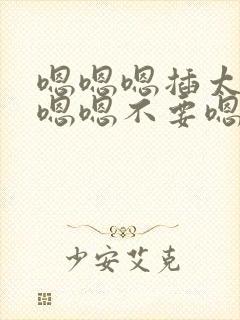 嗯嗯嗯插太
嗯嗯不要嗯
少安艾克